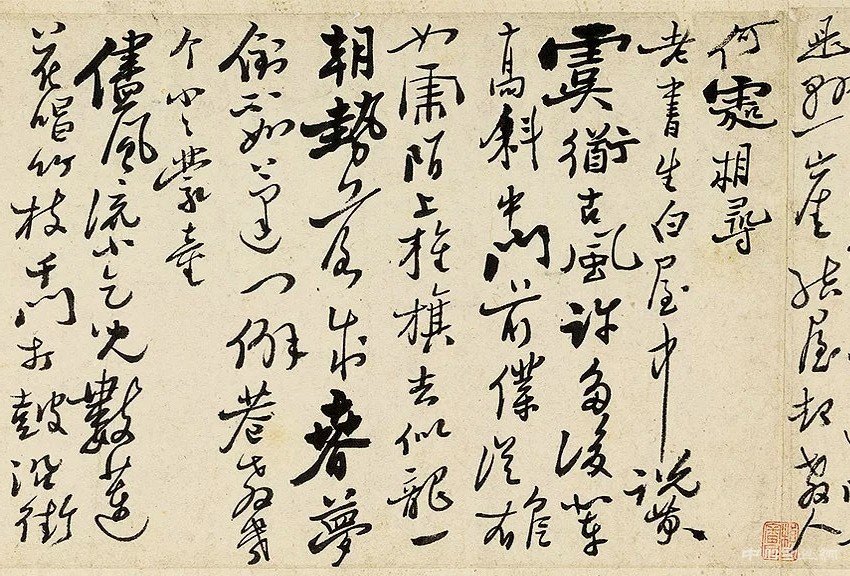 懸崖結屋却教人
何處相尋
老書生白屋中說黃
虞衜古風許多後輩
高科中門前僕從雄
如虎陌上旌旗去似龍一
朝勢落成春夢
倒不如蓬門僻巷教幾
个小小蒙童
儘風流小乞兒數蓮
花唱竹枝千門打鼓沿街